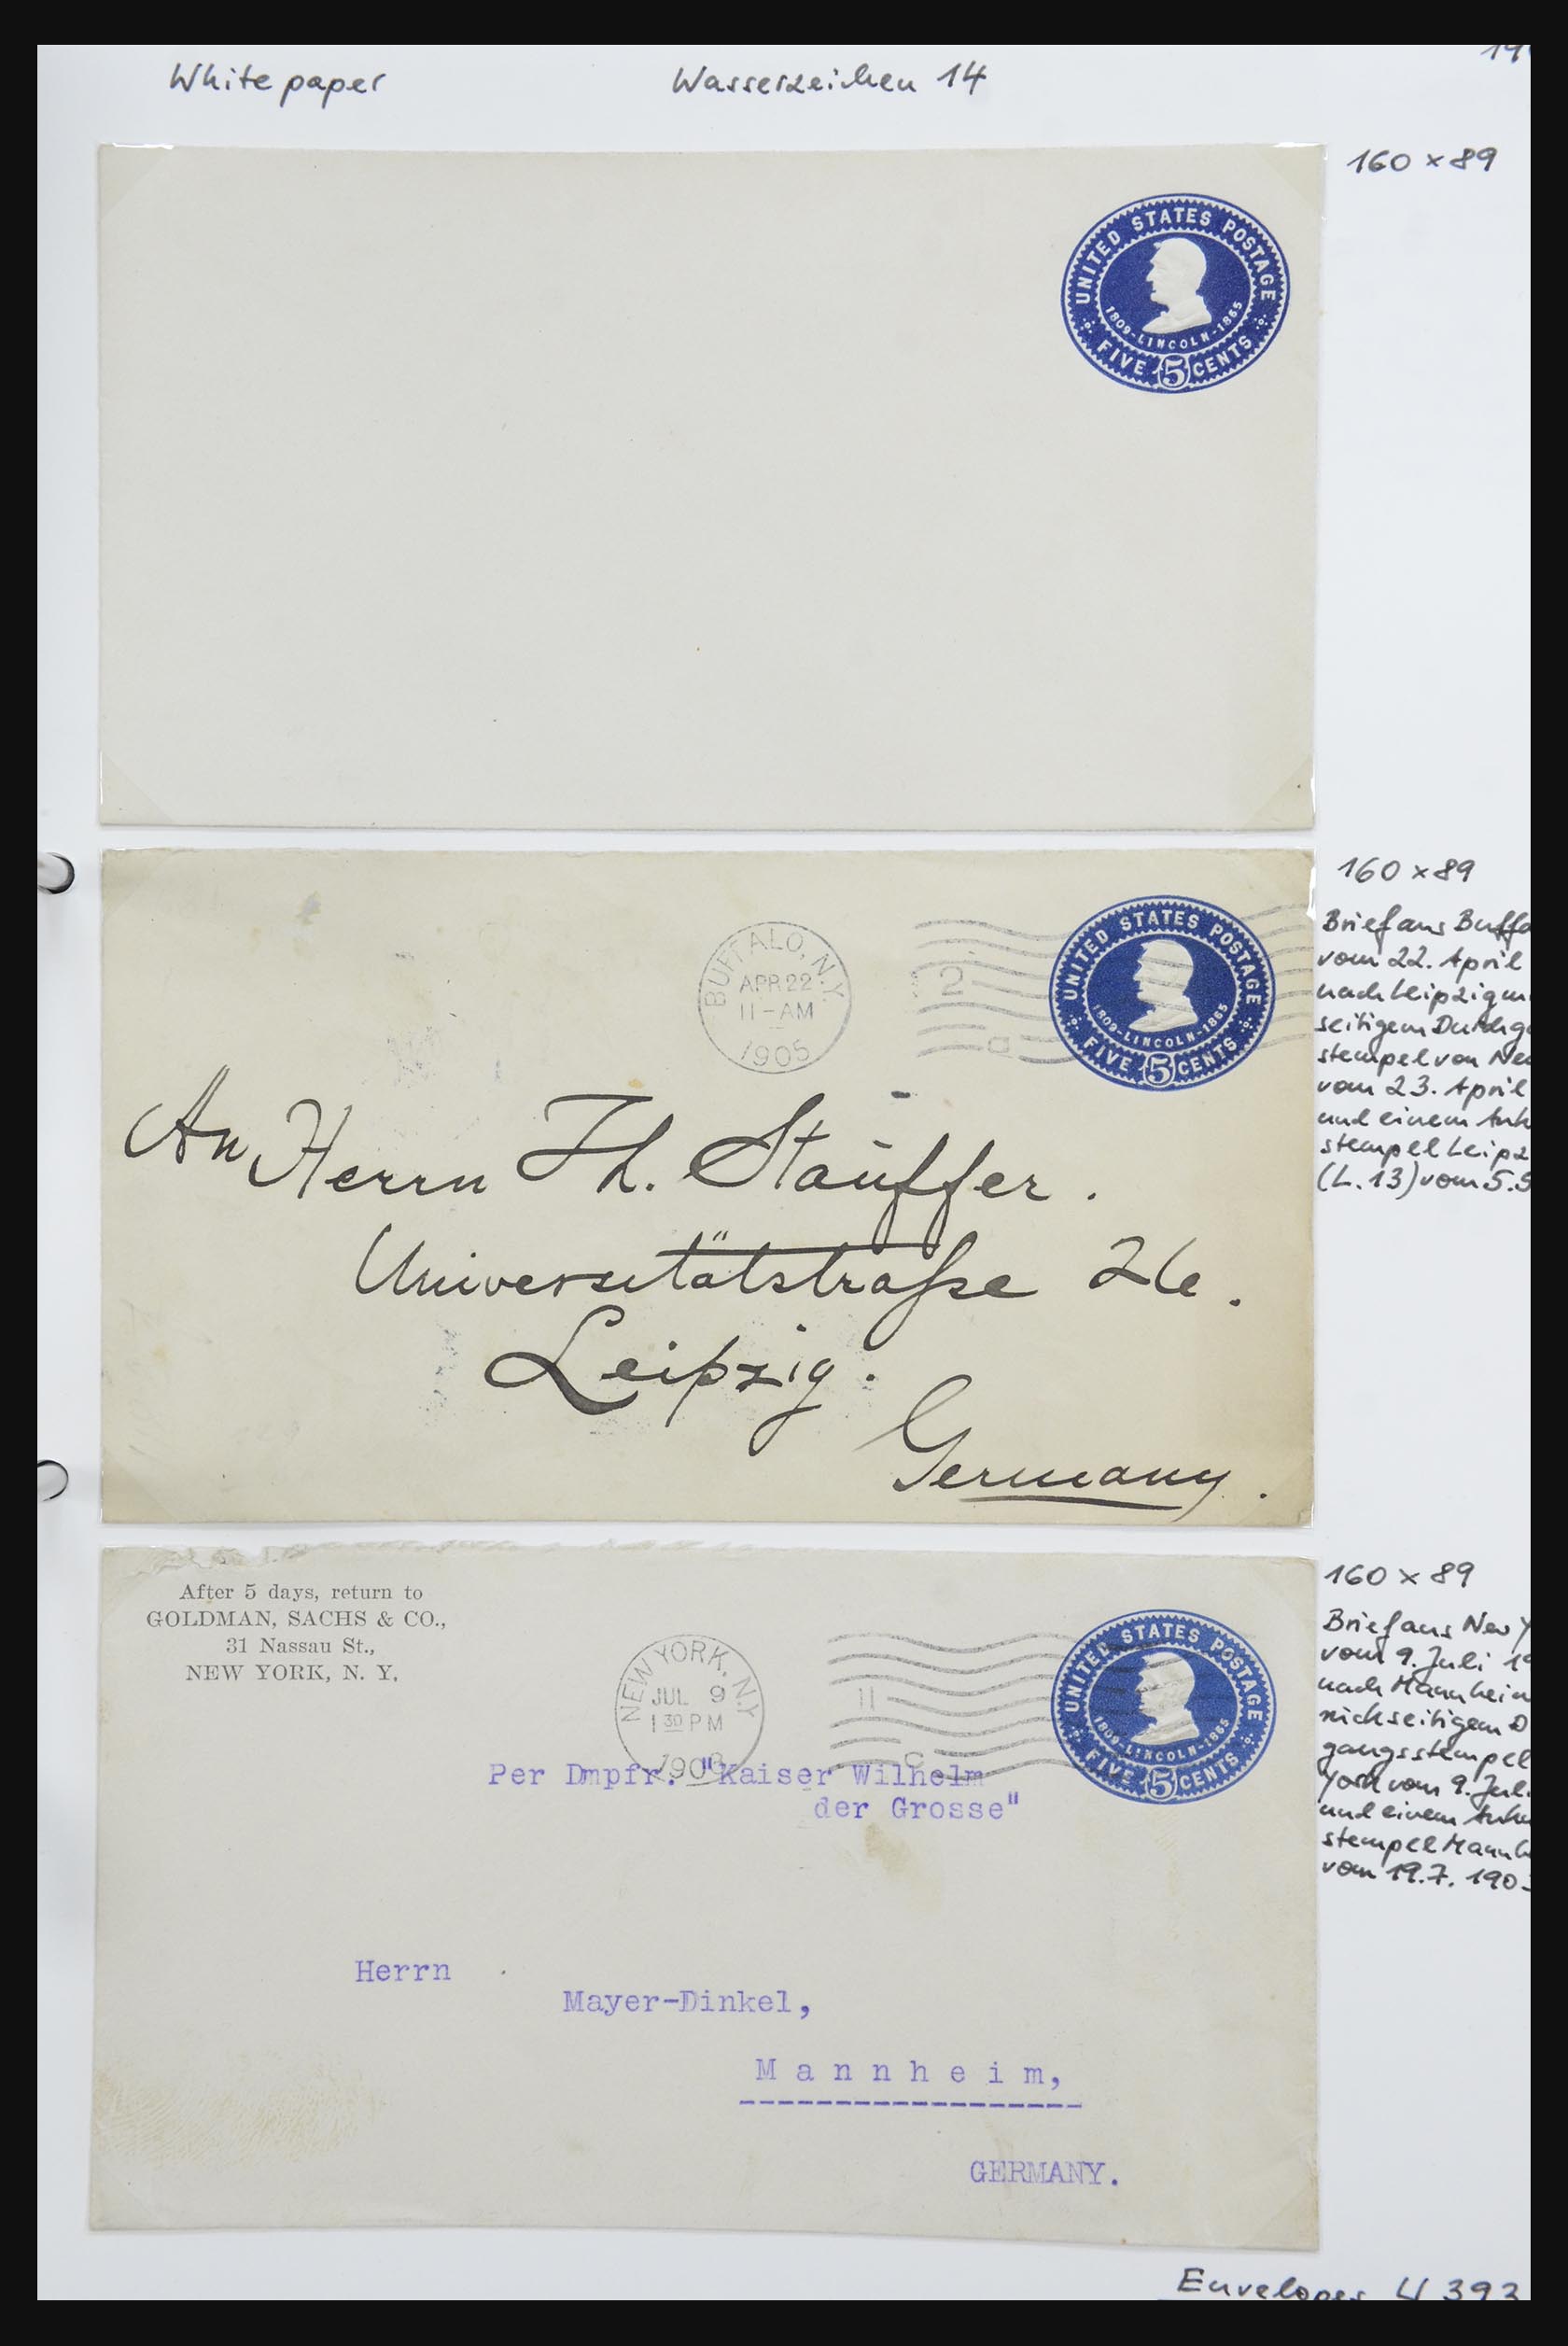 White paper
Wasserzeichen 14
160 × 89
UNITED STATES POSTAGE
1809-LINCOLN-1865
FIVE 5 CENTS
160 × 89
Brief aus Buffa
vom 22. April
nach Leipzig
seitigem Durchg
stempel von Ne
vom 23. April
und einem Ank
stempel Leipz
(L. 13) vom 5.5
BUFFALO, N.Y.
APR 22
11-AM
1905
2
UNITED STATES POSTAGE
1809-LINCOLN-1865
FIVE 5 CENTS
An Herrn Th. Stauffer.
Universitätstraße 26.
Leipzig.
Germany.
160 × 89
Brief aus New Y
vom 9. Juli 19
nach Mannheim
rückseitigem D
gangsstempel
York vom 9. Jul
und einem Anku
stempel Mannh
vom 19.7. 190
After 5 days, return to
GOLDMAN, SACHS & CO.,
31 Nassau St.,
NEW YORK, N. Y.
NEW YORK, N.Y.
JUL 9
1 30 PM
C
UNITED STATES POSTAGE
1809-LINCOLN-1865
FIVE 5 CENTS
Per Dmpfr. "Kaiser Wilhelm
der Grosse"
Herrn
Mayer-Dinkel,
Mannheim,
GERMANY.
Envelopes U 393